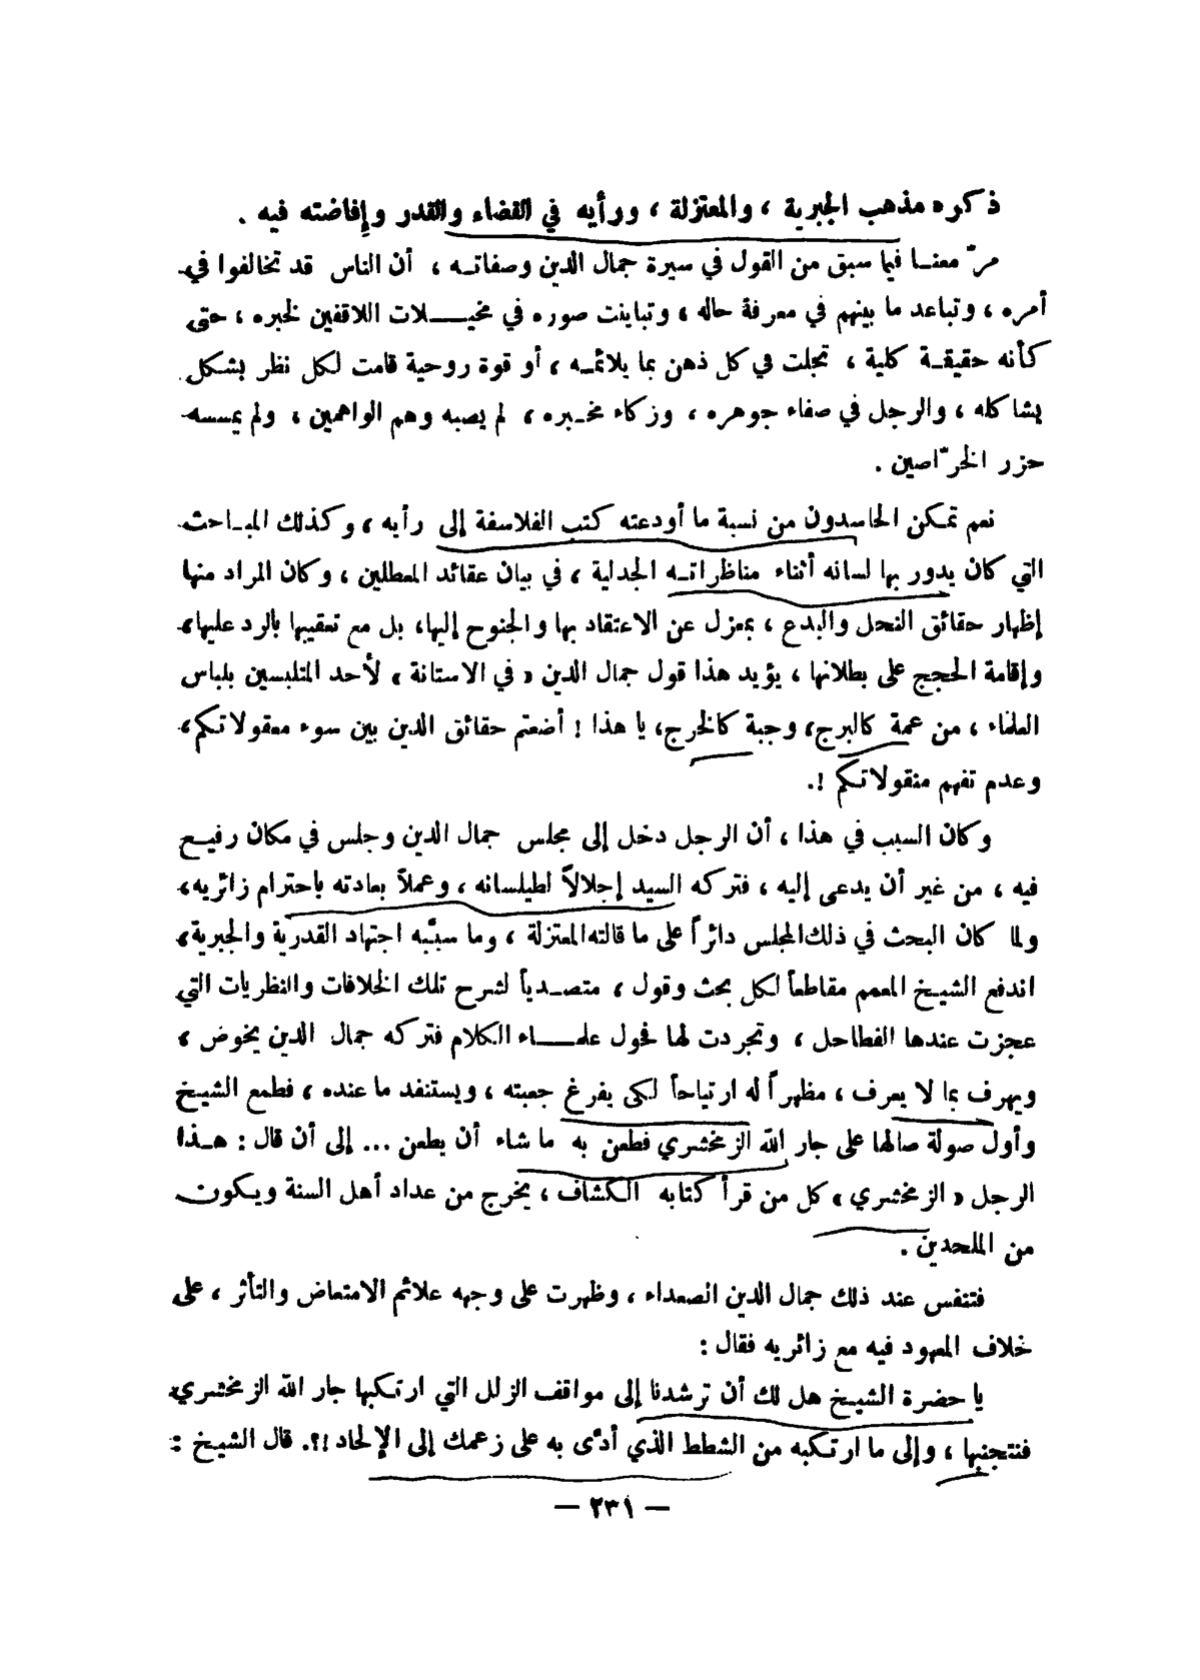 ذكره مذهب الجبرية ، والمعتزلة ، ورأيه في القضاء والقدر وإفاضته فيه .
مرّ معنا فيما سبق من القول في سيرة جمال الدين وصفاته ، أن الناس قد تخالفوا في
أمره ، وتباعد ما بينهم في معرفة حاله ، وتباينت صوره في مخيلات اللاقفين لخبره ، حتى
كأنه حقيقة كلية ، تجلت في كل ذهن بما يلائمه ، أو قوة روحية قامت لكل نظر بشكل
يشاكله ، والرجل في صفاء جوهره ، وزكاء مخبره ، لم يصبه وهم الواهمين ، ولم يمسسه
حزر الخرّاصين .
نعم تمكن الحاسدون من نسبة ما أودعته كتب الفلاسفة إلى رأيه ، وكذلك المباحث
التي كان يدور بها لسانه أثناء مناظراته الجدلية ، في بيان عقائد المعطلين ، وكان المراد منها
إظهار حقائق النحل والبدع ، بمعزل عن الاعتقاد بها والجنوح إليها، بل مع تعقيبها بالرد عليها،
وإقامة الحجج على بطلانها ، يؤيد هذا قول جمال الدين « في الاستانة » لأحد المتلبسين بلباس
العلماء ، من عمة كالبرج، وجبة كالخرج، يا هذا ! أضعتم حقائق الدين بين سوء معقولاتكم،
وعدم تفهم منقولاتكم !.
وكان السبب في هذا ، أن الرجل دخل إلى مجلس جمال الدين وجلس في مكان رفيع
فيه ، من غير أن يدعى إليه ، فتركه السيد إجلالاً لطيلسانه ، وعملاً بعادته باحترام زائريه،
ولما كان البحث في ذلك المجلس دائراً على ما قالته المعتزلة ، وما سبّبه اجتهاد القدرية والجبرية،
اندفع الشيخ المعمم مقاطعاً لكل بحث وقول ، متصدياً لشرح تلك الخلافات والنظريات التي
عجزت عندها الفطاحل ، وتجردت لها فحول علماء الكلام فتركه جمال الدين يخوض ،
ويهرف بما لا يعرف ، مظهراً له ارتياحاً لكى يفرغ جعبته ، ويستنفد ما عنده ، فطمع الشيخ
وأول صولة صالها على جار الله الزمخشري فطعن به ما شاء أن يطعن ... إلى أن قال : هذا
الرجل « الزمخشري » كل من قرأ كتابه الكشاف ، يخرج من عداد أهل السنة ويكون
من الملحدين .
فتنفس عند ذلك جمال الدين الصعداء ، وظهرت على وجهه علائم الامتعاض والتأثر ، على
خلاف المعهود فيه مع زائريه فقال :
يا حضرة الشيخ هل لك أن ترشدنا إلى مواقف الزلل التي ارتكبها جار الله الزمخشري
فنتجنبها ، وإلى ما ارتكبه من الشطط الذي أدّى به على زعمك إلى الإلحاد !؟. قال الشيخ :
— ٢٣١ —